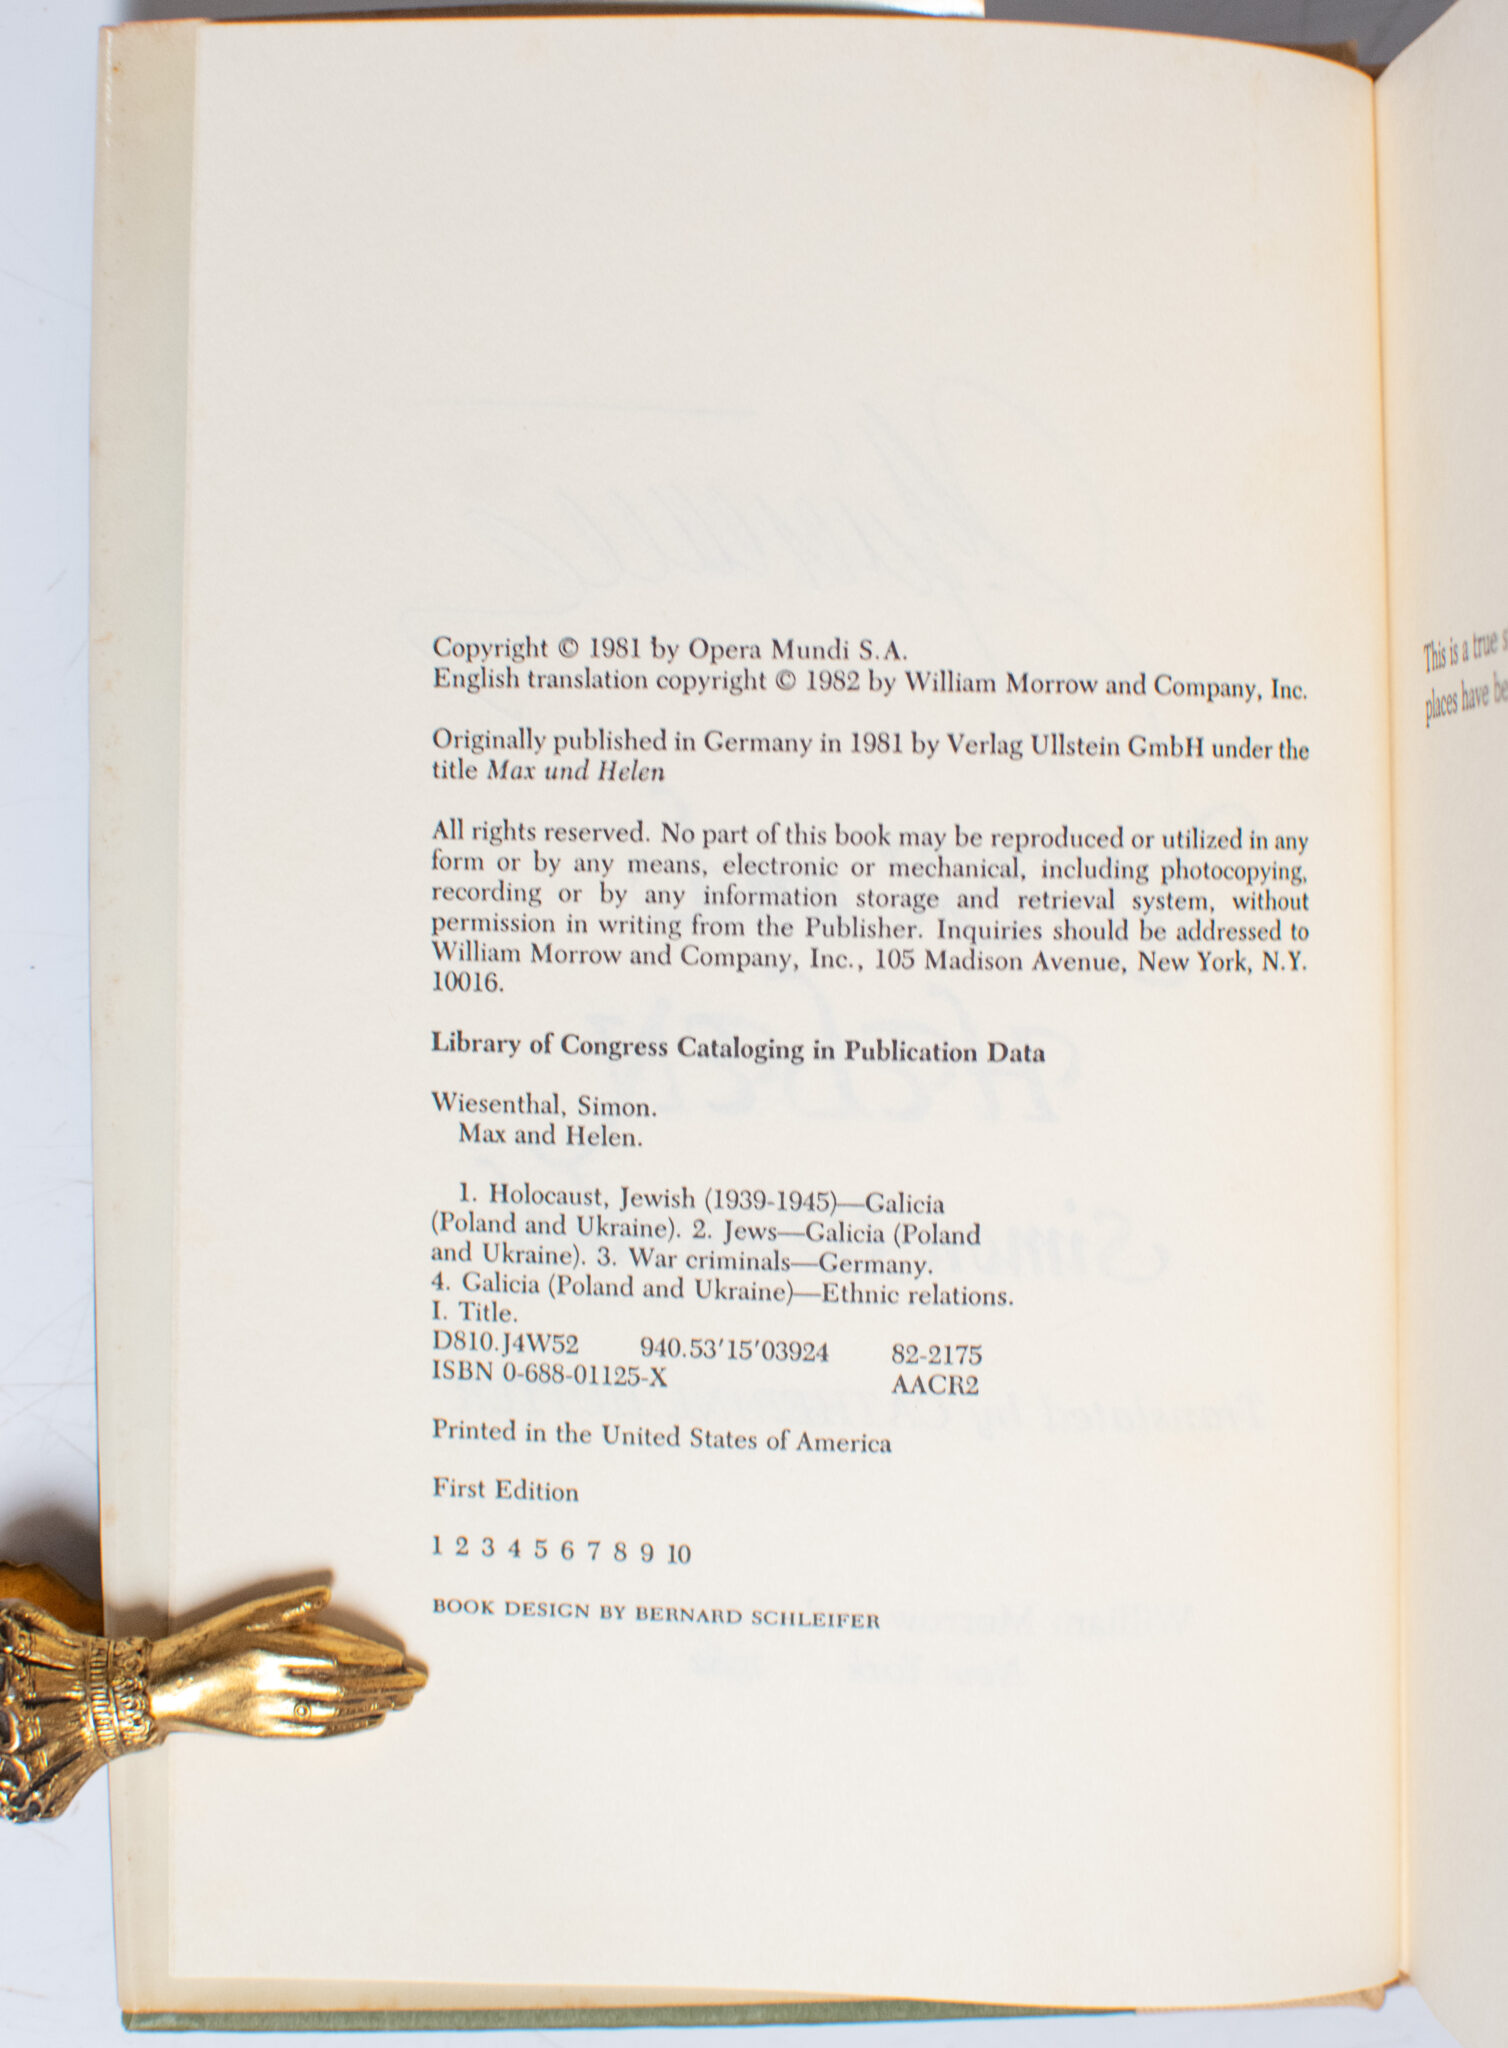 Copyright © 1981 by Opera Mundi S.A.
English translation copyright © 1982 by William Morrow and Company, Inc.
Originally published in Germany in 1981 by Verlag Ullstein GmbH under the
title Max und Helen
All rights reserved. No part of this book may be reproduced or utilized in any
form or by any means, electronic or mechanical, including photocopying,
recording or by any information storage and retrieval system, without
permission in writing from the Publisher. Inquiries should be addressed to
William Morrow and Company, Inc., 105 Madison Avenue, New York, N.Y.
10016.
Library of Congress Cataloging in Publication Data
Wiesenthal, Simon.
Max and Helen.
1. Holocaust, Jewish (1939-1945)—Galicia
(Poland and Ukraine). 2. Jews—Galicia (Poland
and Ukraine). 3. War criminals—Germany.
4. Galicia (Poland and Ukraine)—Ethnic relations.
I. Title.
D810.J4W52 940.53'15'03924 82-2175
ISBN 0-688-01125-X AACR2
Printed in the United States of America
First Edition
1 2 3 4 5 6 7 8 9 10
BOOK DESIGN BY BERNARD SCHLEIFER
This is a true
places have